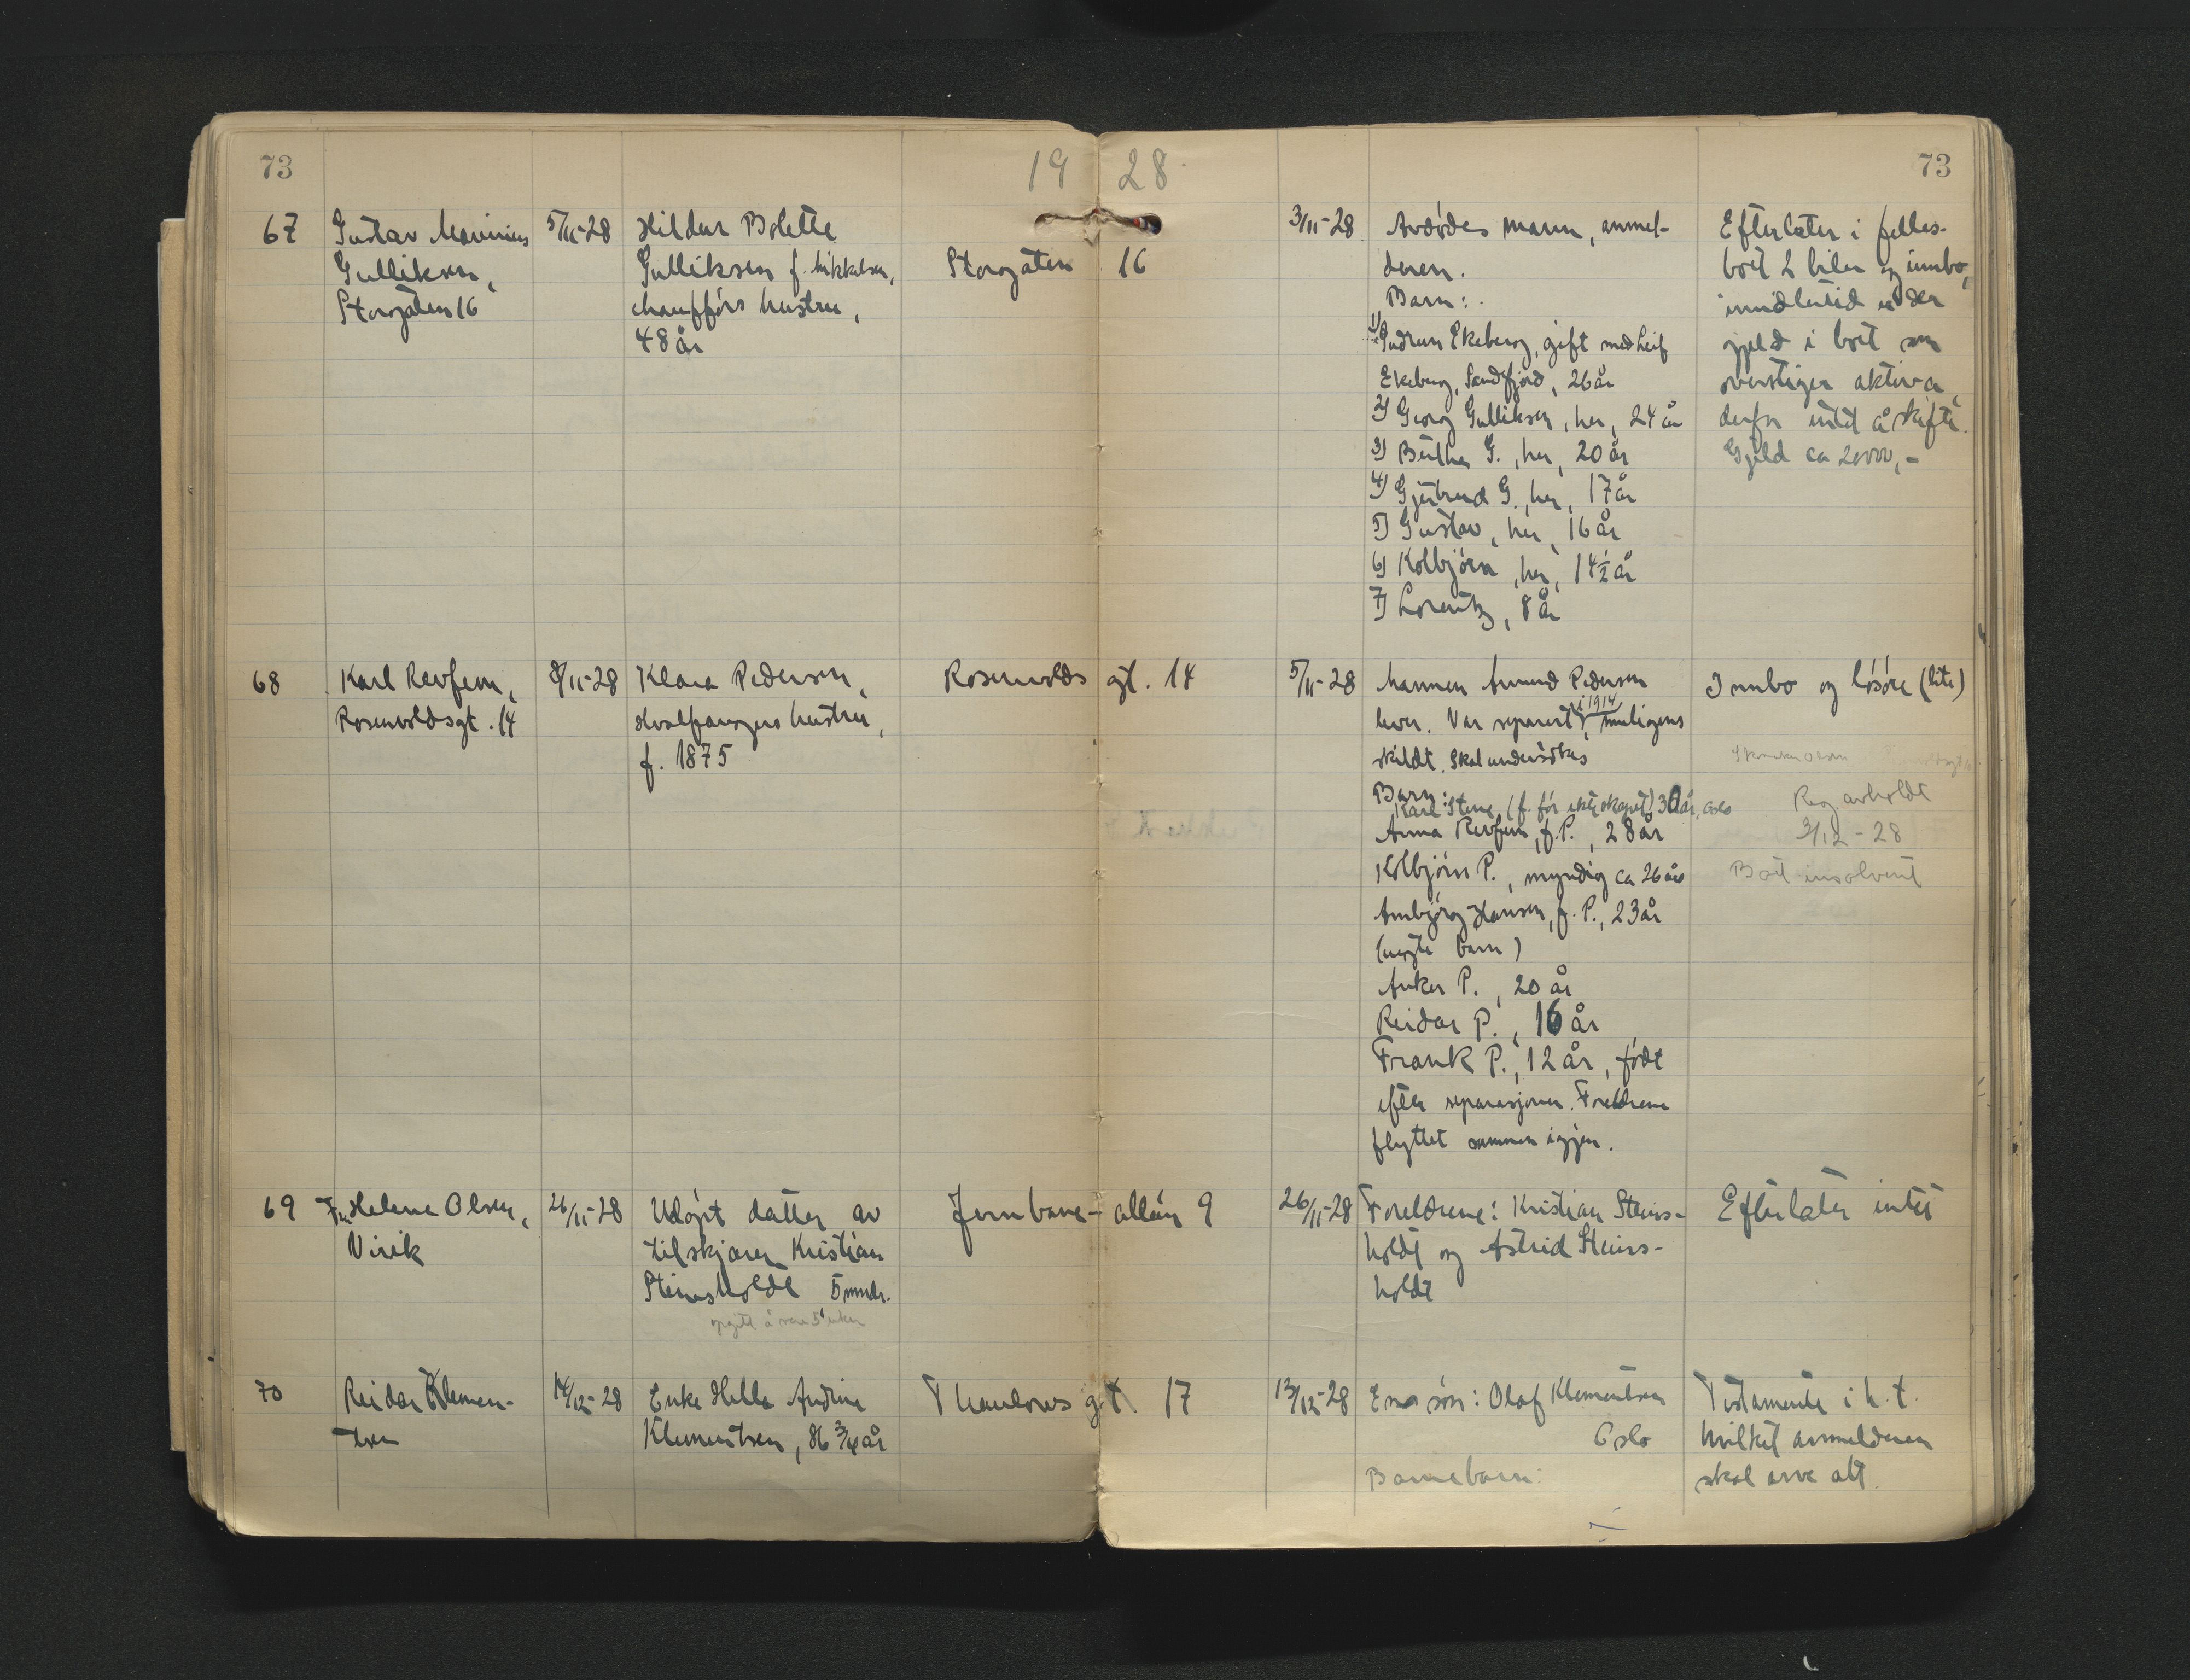 73
19 28
73
67
Gustav Marinius
Gulliksen,
Storgaten 16
5/11-28
Hildur Bolette
Gulliksen f. Mikkelsen,
chaufførs hustru,
48 år
Storgaten 16
3/11-28
Avdødes mann, anmel-
deren.
Barn:
1) Gudrun Ekeberg, gift med Leif
Ekeberg, Sandefjord, 26 år
2) Georg Gulliksen, her, 24 år
3) Berthe G., her, 20 år
4) Gjertrud G., her, 17 år
5) Gustav, her, 16 år
6) Kolbjørn, her, 14½ år
7) Lorentz, 8 år
Efterlater i felles-
boet 2 biler og innbo,
imidlertid er der
gjeld i boet som
overstiger aktiva,
derfor intet å skifte.
Gjeld ca 20000,-
68
Karl Revfem,
Rosenvoldsgt. 14
8/11-28
Klara Pedersen,
Hvalfangers hustru,
f. 1875
Rosenvolds gt. 14
5/11-28
Mannen Amund Pedersen
lever. Var separert i 1914, muligens
skildt. Skal undersökes
Barn:
Karl Stene, (f. før ekteskapet) 30 år, Oslo
Anna Revfem, f. P., 28 år
Kolbjørn P., myndig ca 26 år
Ambjørg Hansen, f. P., 23 år
(uegte barn)
Anker P., 20 år
Reidar P., 16 år
Frank P., 12 år, født
efter separasjonen. Foreldrene
flyttet sammen igjen.
Innbo og løsøre (lite)
Reg. avholdt
3/12-28
Boet insolvent
69
Fru Helene Olsen,
Virik
26/11-28
Udøpt datter av
tilskjærer Kristian
Steinsholdt 5 mndr.
opgitt å være 5 uker
Jernbane-alléen 9
26/11-28
Foreldrene: Kristian Steins-
holdt og Astrid Steins-
holdt
Efterlater intet
70
Reidar Klemen-
tsen
14/12-28
Enke Helle Andrine
Klementsen, 86 3/4 år
Thaulows gt. 17
13/12-28
En søn: Olaf Klementsen
Oslo
Barnebarn:
Testamente i h. t.
hvilket anmelderen
skal arve alt.